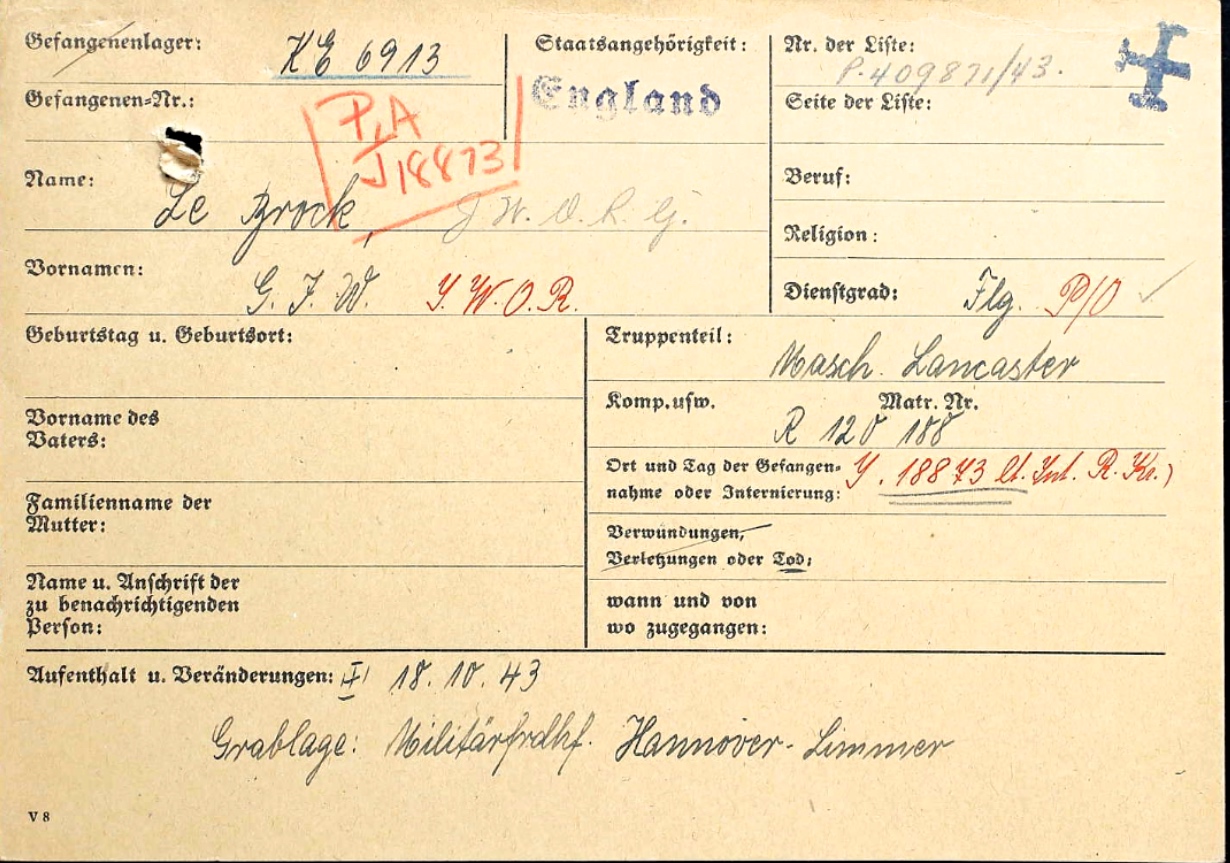 Gefangenenlager: KE 6913
Staatsangehörigkeit:
England
Nr. der Liste:
P. 409871/43.
Gefangenen-Nr.:
P.A
J 18873
Seite der Liste:
Name: Le Brock,
Beruf:
Religion:
Vornamen: G. J. W. J. W. O. R.
Dienstgrad: Flg. P/O
Geburtstag u. Geburtsort:
Truppenteil:
Masch. Lancaster
Komp. usw. Matr. Nr.
R 120 188
Vorname des
Vaters:
Ort und Tag der Gefangen-
nahme oder Internierung:
J. 18873 lt. Int. R. Kr.)
Familienname der
Mutter:
Verwundungen,
Verletzungen oder Tod:
Name u. Anschrift der
zu benachrichtigenden
Person:
wann und von
wo zugegangen:
Aufenthalt u. Veränderungen: 18. 10. 43
Grablage: Militärfrdhf. Hannover-Limmer
V 8